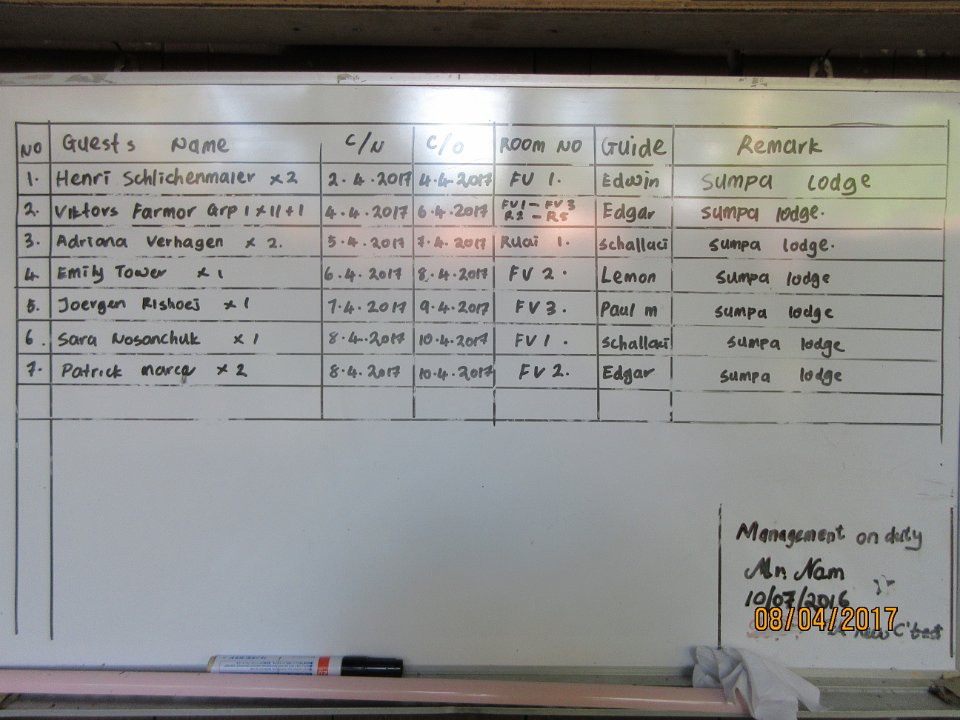 NO Guests Name C/N C/O ROOM NO Guide Remark
1. Henri Schlichenmaier x 2 2.4.2017 4.4.2017 FV 1. Edwin sumpa lodge
2. Viktors Farmor Grp 1 x 11+1 4.4.2017 6.4.2017 FV1 - FV3 R2 - R5 Edgar sumpa lodge.
3. Adriana Verhagen x 2. 5.4.2017 7.4.2017 Ruai 1. Schallaci sumpa lodge.
4. Emily Tower x 1 6.4.2017 8.4.2017 FV 2. Lemon sumpa lodge
5. Joergen Rishoej x 1 7.4.2017 9.4.2017 FV 3. Paul m sumpa lodge
6. Sara Nosanchuk x 1 8.4.2017 10.4.2017 FV 1. Schallaci sumpa lodge
7. Patrick marce x 2 8.4.2017 10.4.2017 FV 2. Edgar sumpa lodge
Management on duty
Mr. Nam
10/07/2016
08/04/2017